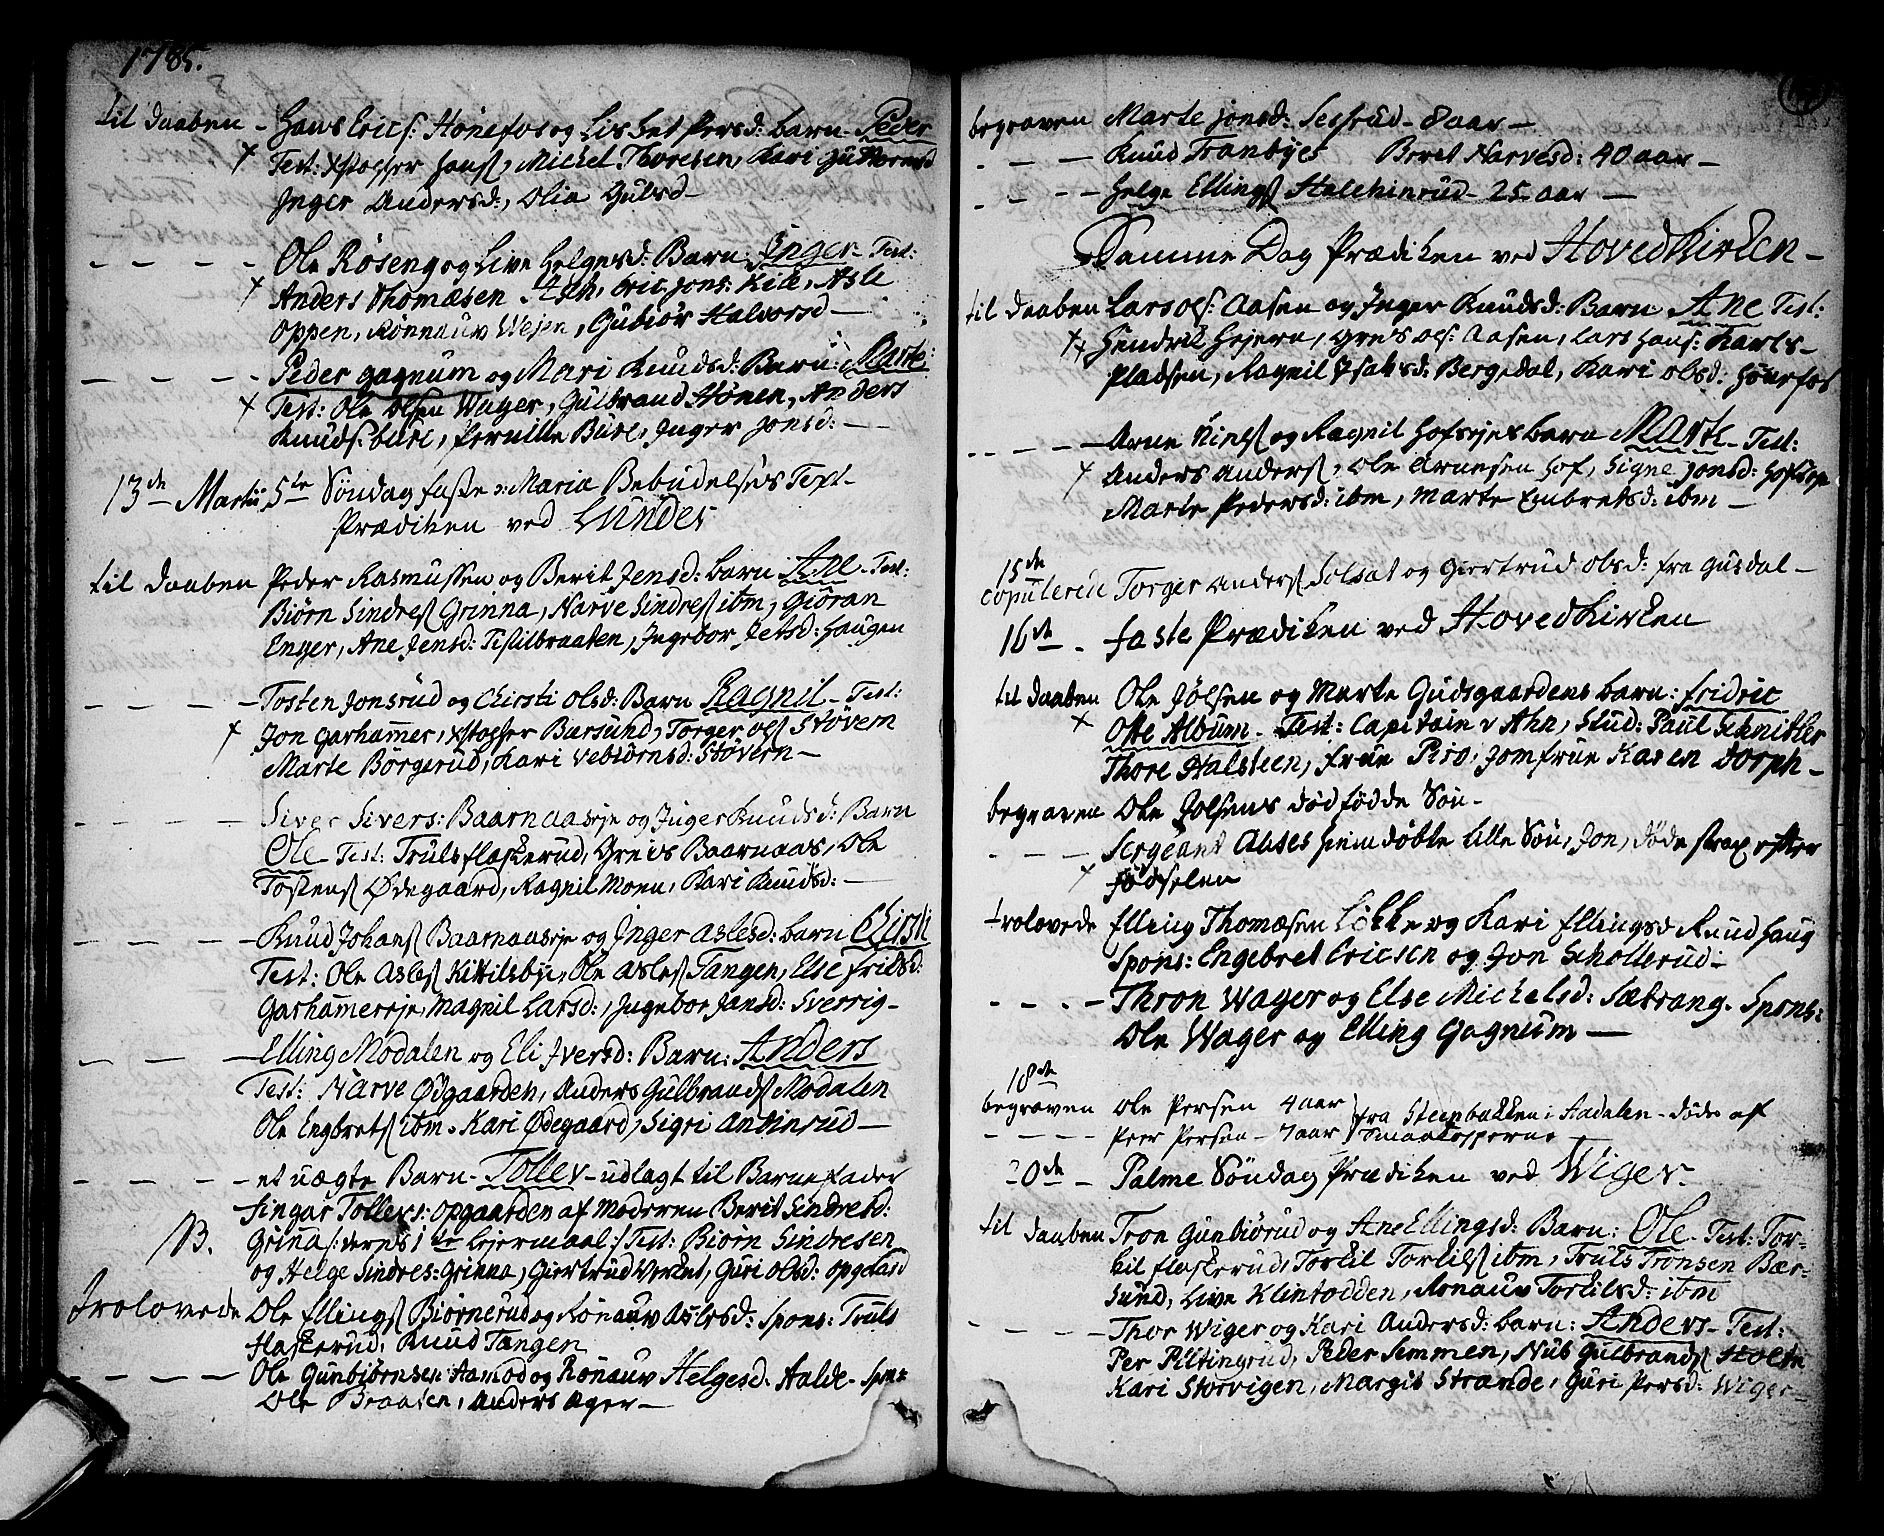 1785.
til daaben - Hans Erics: Hønefos og Lisbet Persd: barn - Peder
Test: Xstoffer Hans, Michel Thoresen, Kari Guttormsd
Inger Andersd:, Olia Gulsd -
- - - - Ole Røseng og Live Helgesd: Barn Inger - Test:
Anders Thomæsen Ask, Eric Jons: Kile, Asle
Oppen, Rønnauv Wejen, Gubiør Halvorsd -
- - - - Peder Gagnum og Mari Knudsd: Barn: Marte
Test: Ole Olsen Wager, Gulbrand Hønen, Anders
Knuds: Bure, Pernille Bure, Inger Jonsd: -
13de Martii, 5te Søndag faste o: Maria Bebudelses Text -
Prædiken ved Lunder
til daaben Peder Rasmussen og Berit Jensd: barn Ane - Test:
Biørn Sindres Grinna, Narve Sindres ibm, Giøran
Enger, Ane Jensd: Tisilbraaten, Ingebor Jensd: Haugen
- - - - Tosten Jonsrud og Chirsti Olsd: Barn Ragnil - Test:
Jon Garhammer, Xstoffer Bærsund, Torger Ols Støvern
Marte Børgerud, Kari Vebiørnsd: Støvern -
- - - - Siver Sivers: Baarnaaseje og Inger Knudsd: Barn
Ole - Test: Truls Flaskerud, Greis Baarnaas, Ole
Tostens Ødegaard, Ragnil Moen, Kari Knudsd: -
- - - - Knud Johans Baarnaaseje og Inger Aslesd: barn Chirsti
Test: Ole Asles Kittilsbye, Ole Asles Tangen, Else Ericsd:
Garhammereje, Magnil Larsd:, Ingebor Jansd: Sverrig -
- - - - Elling Modalen og Eli Iversd: Barn: Anders
Test: Narve Ødgaarden, Anders Gulbrands Modalen
Ole Engbrets ibm - Kari Ødegaard, Sigri Antinrud -
- - - - et uægte Barn - Tollev - udlagt til Barnefader
Tollevs: Opgaarden af Moderen Berit Sindresd:
NB. Grina /: deres 1te Lejermaal :/ Test: Biørn Sindresen
og Helge Sindres: Grinna, Giertrud Verket, Guri Olsd:
Trolovede Ole Ellings Biørnerud og Rønauv Aslesd: Spons: Truls
Flaskerud, Knud Tangen
- - - - Ole Gunbiørnsen Hamod og Rønauv Helgesd. Halde - Spons:
Ole Braasen, Anders Ager -
begraven Marte Jonsd: Sessrud - 8 aar -
- - - Knud Tranbyes Beret Narvesd: 40 aar -
- - - Helge Ellings Halchinrud - 25 aar -
Samme Dag Prædiken ved Hovedkirken -
til daaben Lars Ols: Aasen og Inger Knudsd: Barn Ane Test:
Hendrik Hejern, Greis Ols: Aasen, Lars Hans: Karls-
pladsen, Ragnil Isaksd: Bergedal, Kari Olsd: Hønefos
- - - - Arne Niels og Ragnil Hofsejes barn Marte - Test:
Anders Anders, Ole Arnesen Hof, Signe Jonsd: Hofseje
Marte Pedersd: ibm, Marte Embretsd: ibm -
15de
copulerede Torger Anders Soldat og Giertrud Olsd: fra Gusdal -
16de - faste Prædiken ved Hovedkirken
til daaben Ole Jølsen og Marte Gudsgaardens barn: Fridric
Otte Album - Test: Capitain v Ahn, Stud: Paul Schnitler
Thore Halsteen, Frue Piro, Jomfrue Karen Dorph -
begraven Ole Jolsens dødfødde Søn -
- - - Sergeant Auses hiemdøbte lille Søn, Jon, døde strax efter
fødselen
trolovede Elling Thomæsen Løkke og Kari Ellingsd Knud Haug
Spons: Engebret Ericsen og Jon Schollerud -
- - - - Thron Wager og Else Michelsd: Sætrang - Spons:
Ole Wager og Elling Gagnum -
18de
begraven Ole Persen 4 aar } fra Steenbakken i Aadalen - døde af
- - - - Peer Persen - 7 aar } Smaakopperne
20de - Palme Søndag Prædiken ved Wiger -
til daaben Tron Gunbiørud og Ane Ellingsd: Barn: Ole - Test: Tor-
kil Flaskerud, Torkil Torkils ibm, Truls Tronsen Bær-
sund, Live Klintodden, Rønauv Torkilsd: ibm
- - - - Thor Wiger og Kari Andersd: barn: Anders - Test:
Per Piltingsrud, Peder Semmen, Nub Gulbrands Holte
Kari Storvigen, Margit Strande, Guri Persd: Wiger -